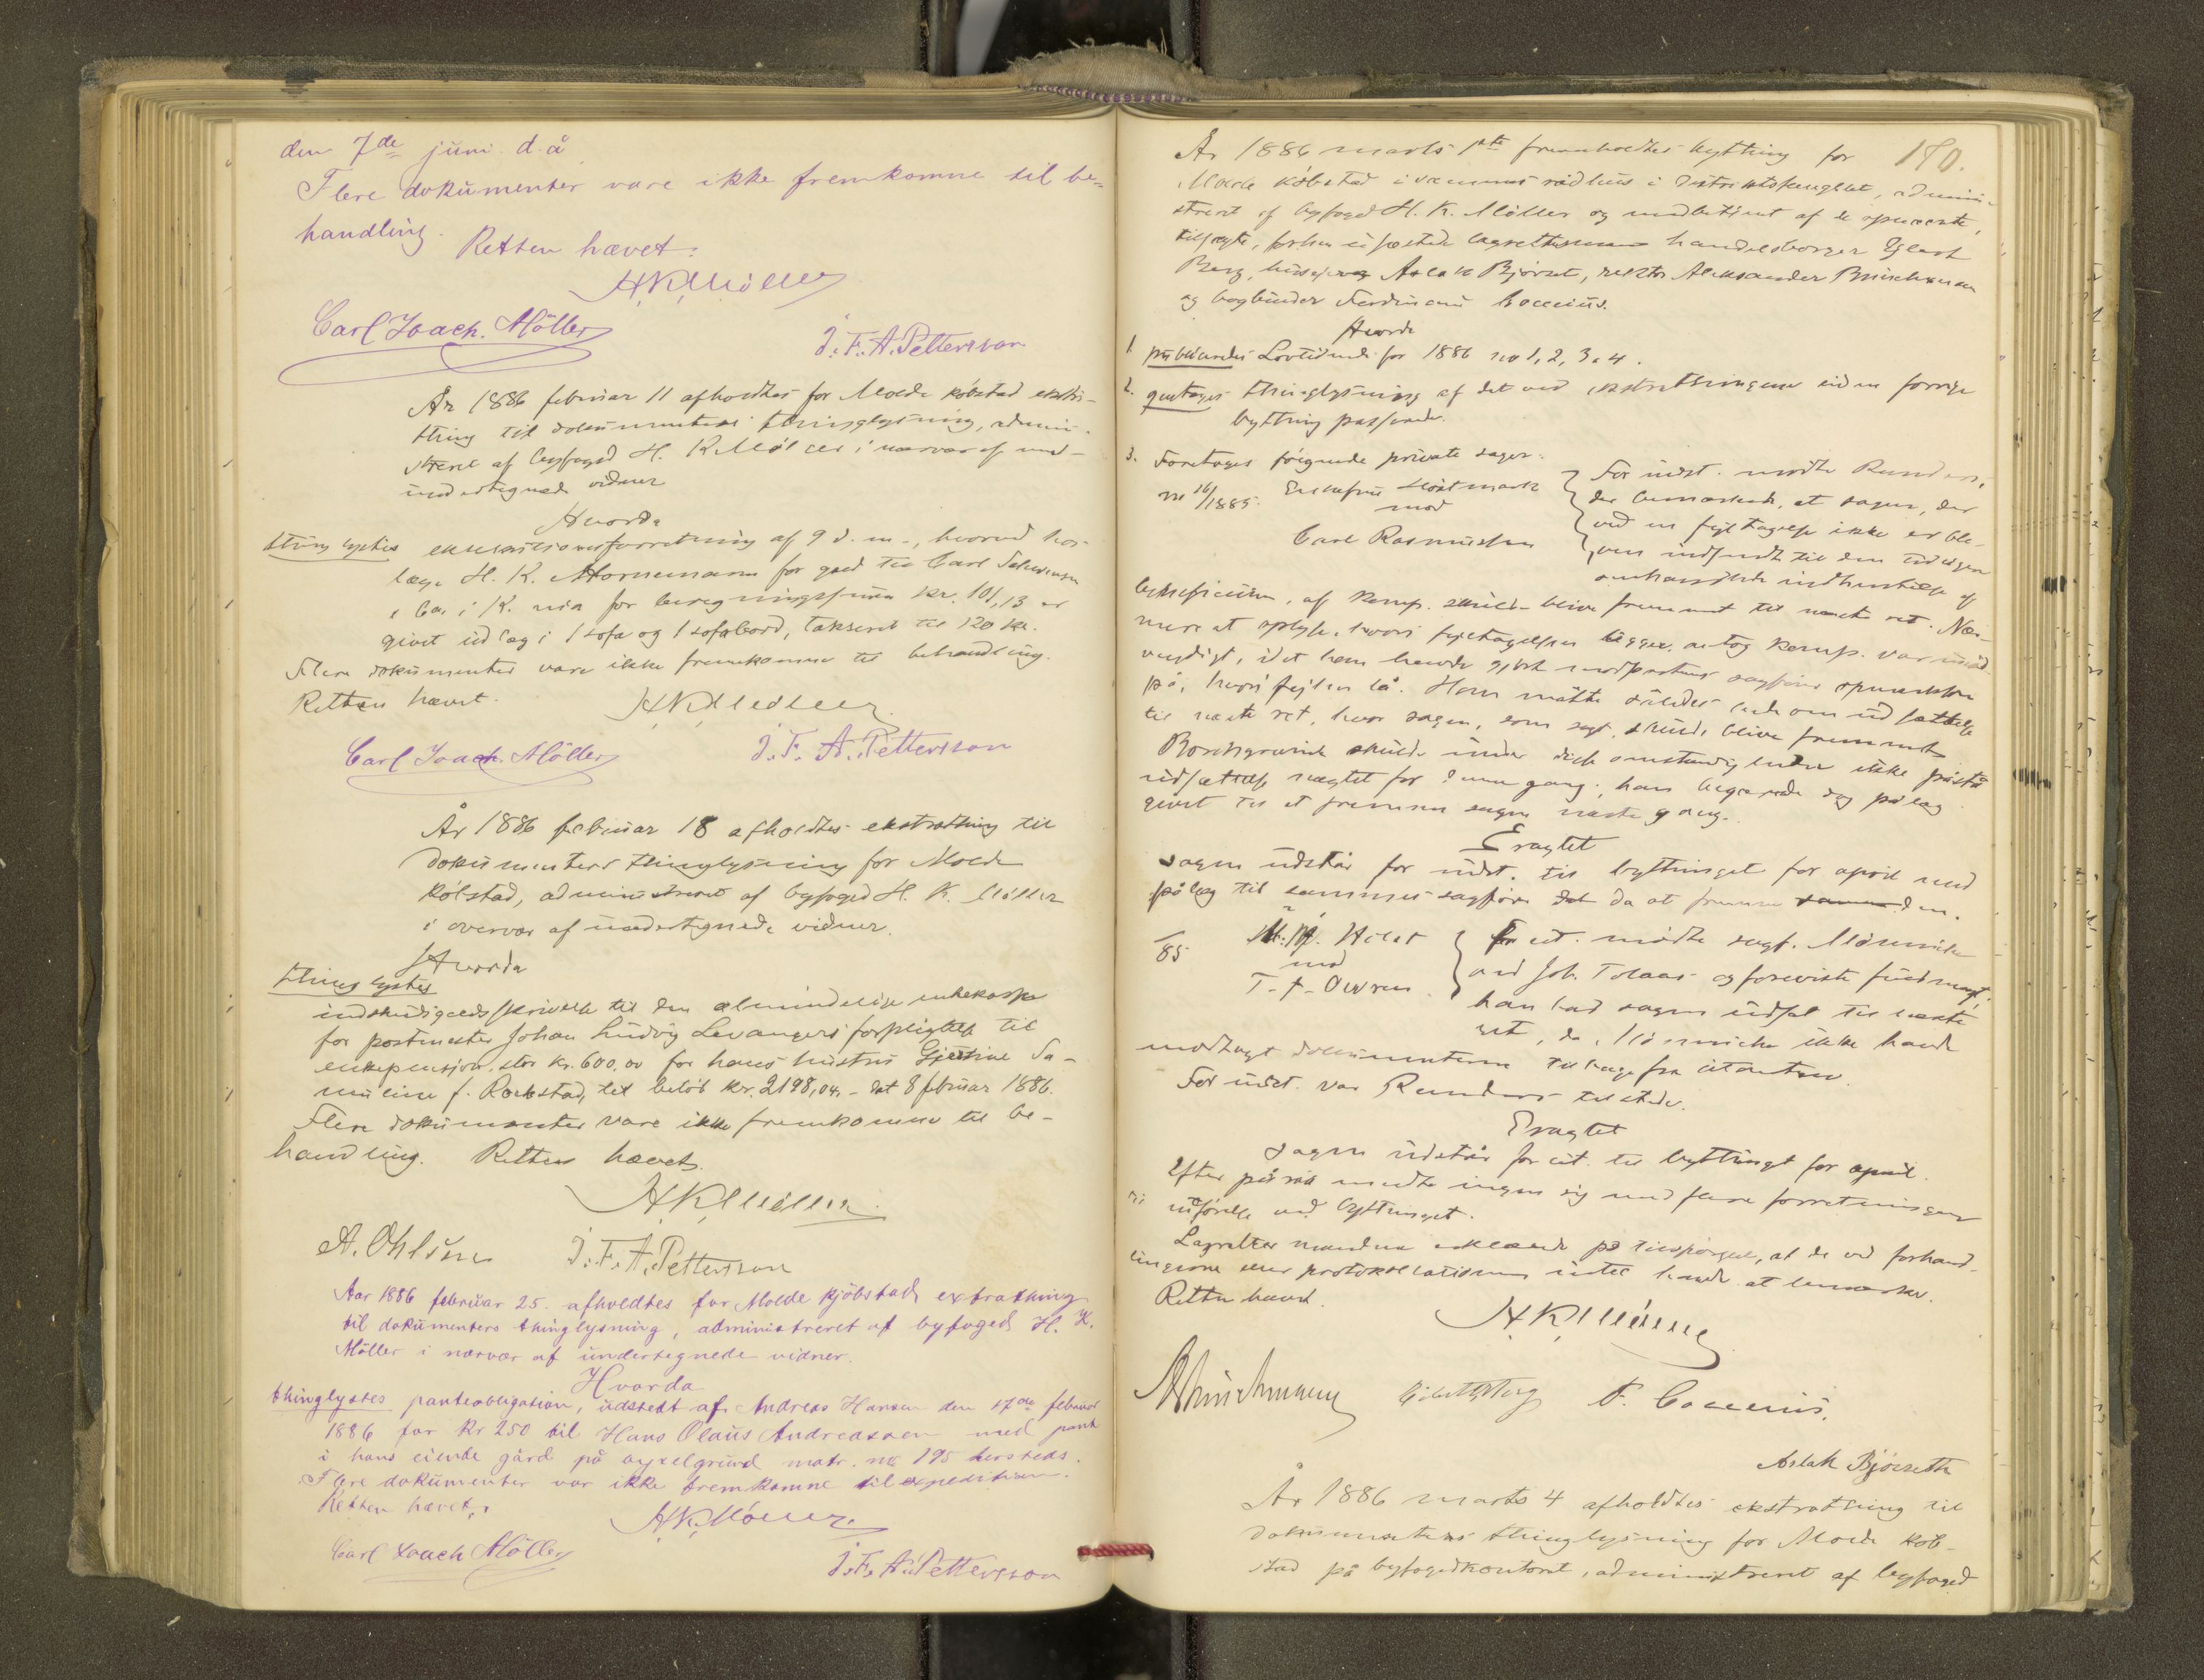 den 7de juni d. å
Flere dokumenter vare ikke fremkomne til be-
handling.
Retten hævet:
H.K. Möller
Carl Joach. Möller
J. F. A. Pettersson
År 1886 februar 11 afholdtes for Molde købstad ekstra-
thing til dokumenters thinglysning, admini-
streret af byfoged H. K. Möller i nærvær af
undertegnede vidner
Hvorda
thinglystes eksekutionsforretning af 9 d. m., hvorved
læge H. K. Hornemann for gæld til Carl
& Co. i K. for beregningssum kr. 101,13 er
givet udlæg i 1 sofa og 1 sofabord, takseret til 120 kr.
Flere dokumenter vare ikke fremkomne til behandling.
Retten hævet.
H.K. Möller
Carl Joach. Möller
J. F. A. Pettersson
År 1886 februar 18 afholdtes ekstrathing til
dokumenters thinglysning for Molde
købstad, administreret af byfoged H. K. Möller
i overvær af undertegnede vidner.
Hvorda
thinglystes
indskudsgældsskrivelse til den almindelige enkekasse
for postmester Johan Ludvig Levangers forpligtelse til
enkepension, stor kr. 600,00 for hans hustru Gjertine Sa-
muline f. Rokstad, til beløb kr. 2198,04, dat 8 februar 1886.
Flere dokumenter vare ikke fremkomne til be-
handling. Retten hævet.
H.K. Möller
A. Ohlsen
J. F. A. Pettersson
Aar 1886 februar 25. afholdtes for Molde kjöbstad extrathing
til dokumenters thinglysning, administreret af byfoged H. K.
Möller i nærvær af undertegnede vidner.
Hvorda
thinglystes panteobligation, udstedt af Andreas Hansen den 17de februar
1886 for kr 250 til Hans Olaus Andreassen med pant
i hans eiende gård på øyrelgrund matr. no 195 hersteds.
Flere dokumenter var ikke fremkomne til expedition.
Retten hævet.
H.K. Möller
Carl Joach Möller
J. F. A. Pettersson
180.
År 1886 marts 1ste fremholdtes bything for
Molde købstad i sammes rådhus i distriktsfængslet, admini-
streret af byfoged H. K. Möller og medbetjent af de opnævnte,
tilsagte, forhen edfæstede lagrettesmænd handelsborger Eilert
Berg, huseier Aslak Bjørset, rektor Aleksander Brinchmann
og bogbinder Ferdinand Cocceius.
Hvorda
1. publiceredes Lovtidende for 1886 no 1, 2, 3 & 4.
2. gentages thinglysning af det ved ekstrathingene siden forrige
bything passerede.
3. Foretages følgende private sager:
no 16/1885. Enkefru
mod
Carl Rasmussen
For indst. mødte Randers,
der bemærkede, at sagen, der
ved en fejltagelse ikke er ble-
ven indsendt til den tidligere
omhandlede indhentelse af
beneficium, af komp. skulde blive fremmet til næste ret. Nær-
mere at oplyse, hvori fejltagelsen ligger, antog komp. var unød-
vendigt, idet han havde gjort modpartens sagfører opmærksom
på, hvori fejlen lå. Han måtte således bede om udsættelse
til næste ret, hvor sagen, som sagt, skulde blive fremmet
Borchgrevink skulde under disse omstændigheder ikke påstå
udsættelse nægtet for denne gang, han begærede dog pålæg
givet til at fremme sagen næste gang.
Eragtet
sagen udstår for indst. til bythinget for april med
pålæg til sammes sagfører da at fremme den.
/85
mod
T. A. Owren
For cit. mødte sagf.
ved Joh. Tolaas og foreviste fuldmagt;
han bad sagen udsat til næste
ret, da ikke havde
modtaget dokumenterne tilbage fra citanten.
For indst. var Randers tilstede.
Eragtet
sagen udstår for cit. til bythinget for april.
Efter påråb meldte ingen sig med flere forretninger
til udførelse ved bythinget.
Lagrettesmændene erklærede på tilspørgsel, at de ved forhand-
lingerne eller protokollationen intet havde at bemærke.
Retten hævet.
H.K. Möller
ABrinchmann
Eilert Berg
F. Cocceius.
Aslak Bjørseth
År 1886 marts 4 afholdtes ekstrathing til
dokumenters thinglysning for Molde køb-
stad på byfogedkontoret, administreret af byfoged